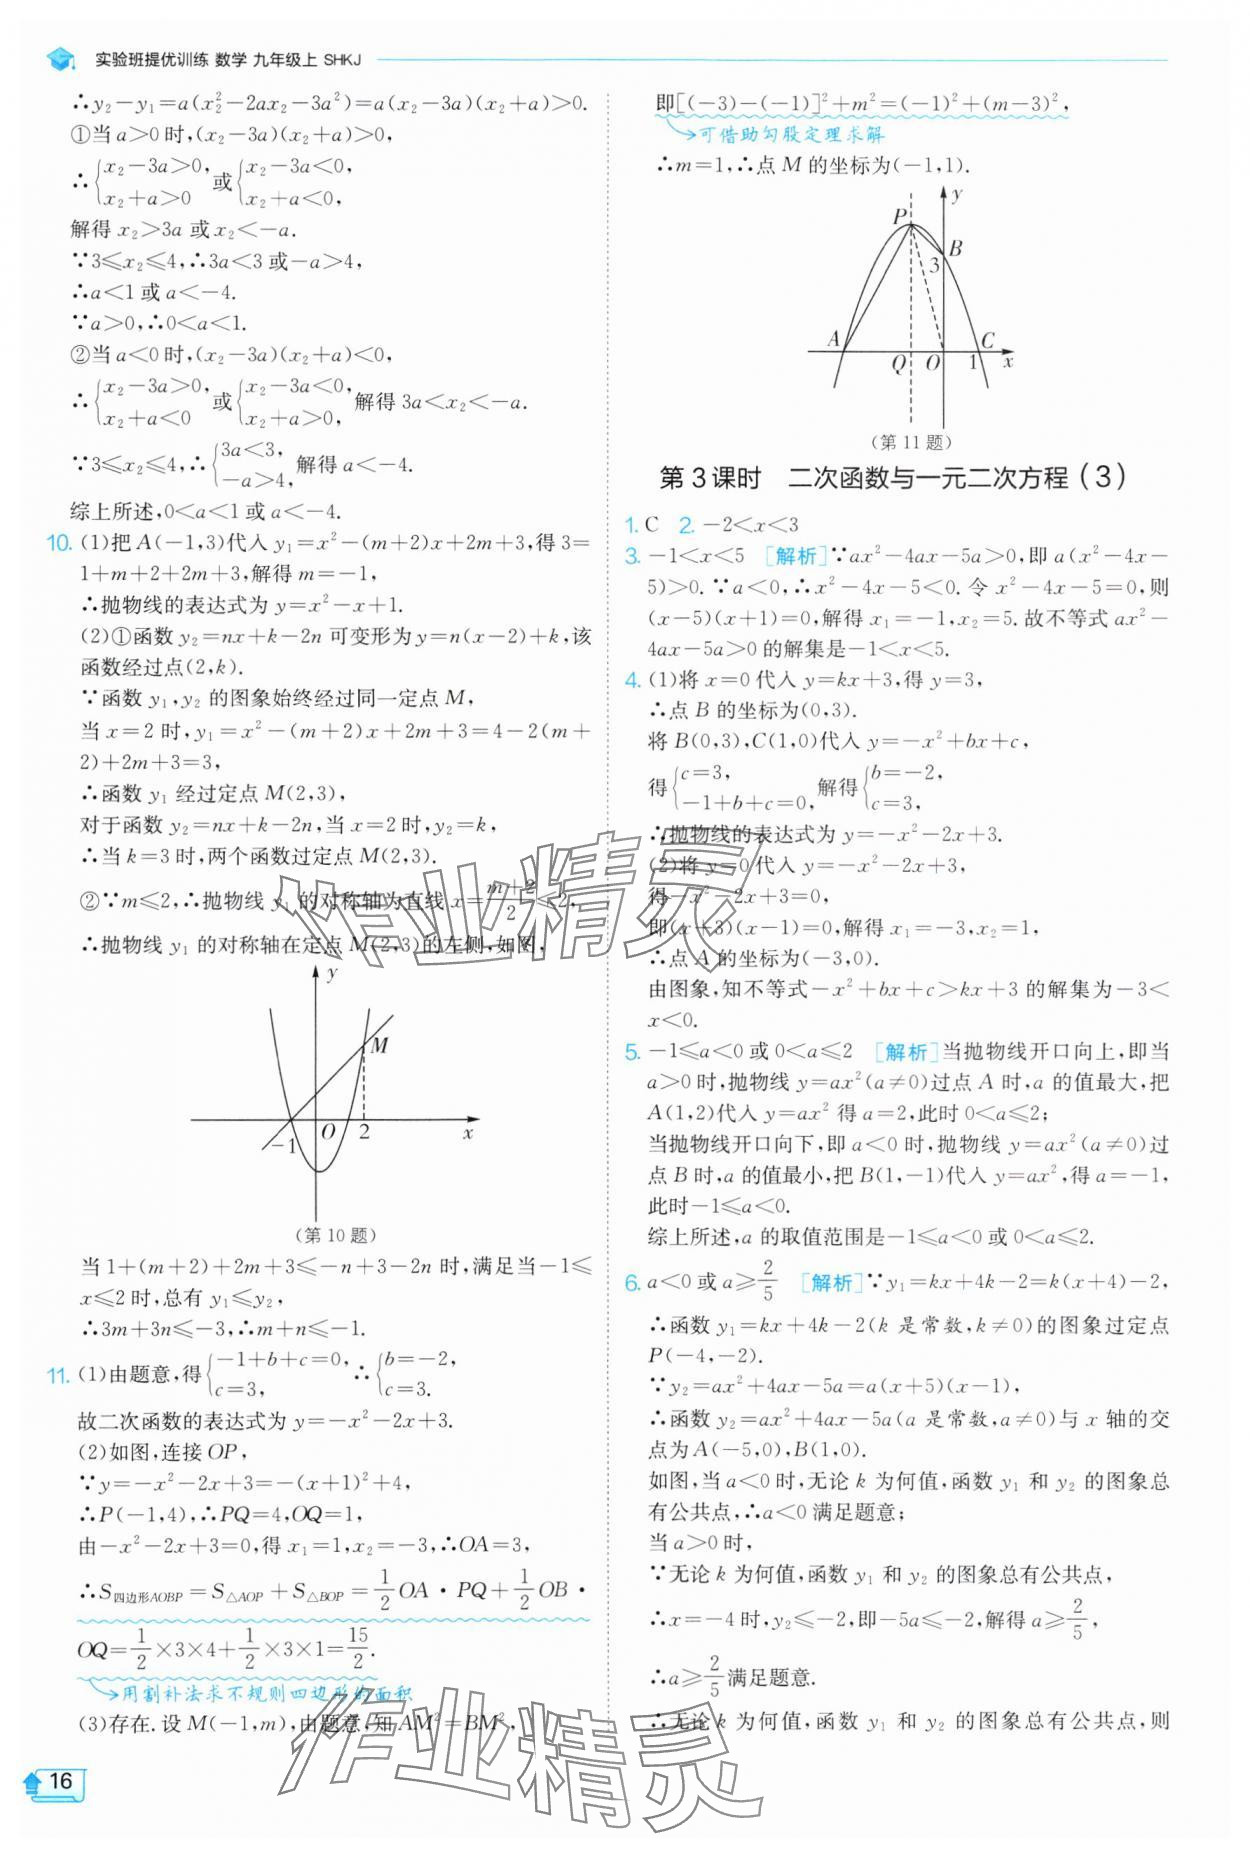 实验班提优训练 数学 九年级上 SHKJ
∴y₂-y₁=a(x₂²-2ax₂-3a²)=a(x₂-3a)(x₂+a)>0.
①当a>0时,(x₂-3a)(x₂+a)>0,
∴{x₂-3a>0, x₂+a>0 或{x₂-3a<0, x₂+a<0,
解得 x₂>3a 或 x₂<-a.
∵3≤x₂≤4,∴3a<3 或-a>4,
∴a<1 或 a<-4.
∵a>0,∴0<a<1.
②当a<0时,(x₂-3a)(x₂+a)<0,
∴{x₂-3a>0, x₂+a<0 或{x₂-3a<0, x₂+a>0, 解得 3a<x₂<-a.
∵3≤x₂≤4,∴{3a<3, -a>4, 解得 a<-4.
综上所述,0<a<1 或 a<-4.
10. (1)把A(-1,3)代入 y₁=x²-(m+2)x+2m+3,得 3=
1+m+2+2m+3,解得 m=-1,
∴抛物线的表达式为 y=x²-x+1.
(2)①函数 y₂=nx+k-2n 可变形为 y=n(x-2)+k,该
函数经过点(2,k).
∵函数 y₁,y₂ 的图象始终经过同一定点 M,
当 x=2 时,y₁=x²-(m+2)x+2m+3=4-2(m+
2)+2m+3=3,
∴函数 y₁ 经过定点 M(2,3),
对于函数 y₂=nx+k-2n,当 x=2 时,y₂=k,
∴当 k=3 时,两个函数过定点 M(2,3).
②∵m≤2,∴抛物线 y₁ 的对称轴为直线 x=(m+2)/2≤2,
∴抛物线 y₁ 的对称轴在定点 M(2,3)的左侧,如图,
y
M
-1 O 2 x
(第 10 题)
当 1+(m+2)+2m+3≤-n+3-2n 时,满足当-1≤
x≤2 时,总有 y₁≤y₂,
∴3m+3n≤-3,∴m+n≤-1.
11. (1)由题意,得{-1+b+c=0, c=3, ∴{b=-2, c=3.
故二次函数的表达式为 y=-x²-2x+3.
(2)如图,连接 OP,
∵y=-x²-2x+3=-(x+1)²+4,
∴P(-1,4),∴PQ=4,OQ=1,
由-x²-2x+3=0,得 x₁=1,x₂=-3,∴OA=3,
∴S四边形AOBP=S△AOP+S△BOP=1/2 OA·PQ+1/2 OB·
OQ=1/2×3×4+1/2×3×1=15/2.
用割补法求不规则四边形的面积
(3)存在.设 M(-1,m),由题意,知 AM²=BM²,
16
即[(-3)-(-1)]²+m²=(-1)²+(m-3)²,
可借助勾股定理求解
∴m=1,∴点 M 的坐标为(-1,1).
y
P
B
3
A C
Q O 1 x
(第 11 题)
第 3 课时 二次函数与一元二次方程(3)
1. C 2. -2<x<3
3. -1<x<5 [解析]∵ax²-4ax-5a>0,即 a(x²-4x-
5)>0.∵a<0,∴x²-4x-5<0.令 x²-4x-5=0,则
(x-5)(x+1)=0,解得 x₁=-1,x₂=5.故不等式 ax²-
4ax-5a>0 的解集是-1<x<5.
4. (1)将 x=0 代入 y=kx+3,得 y=3,
∴点 B 的坐标为(0,3).
将 B(0,3),C(1,0)代入 y=-x²+bx+c,
得{c=3, -1+b+c=0, 解得{b=-2, c=3,
∴抛物线的表达式为 y=-x²-2x+3.
(2)将 y=0 代入 y=-x²-2x+3,
得-x²-2x+3=0,
即(x+3)(x-1)=0,解得 x₁=-3,x₂=1,
∴点 A 的坐标为(-3,0).
由图象,知不等式-x²+bx+c>kx+3 的解集为-3<
x<0.
5. -1≤a<0 或 0<a≤2 [解析]当抛物线开口向上,即当
a>0 时,抛物线 y=ax²(a≠0)过点 A 时,a 的值最大,把
A(1,2)代入 y=ax² 得 a=2,此时 0<a≤2;
当抛物线开口向下,即 a<0 时,抛物线 y=ax²(a≠0)过
点 B 时,a 的值最小,把 B(1,-1)代入 y=ax²,得 a=-1,
此时-1≤a<0.
综上所述,a 的取值范围是-1≤a<0 或 0<a≤2.
6. a<0 或 a≥2/5 [解析]∵y₁=kx+4k-2=k(x+4)-2,
∴函数 y₁=kx+4k-2(k 是常数,k≠0)的图象过定点
P(-4,-2).
∵y₂=ax²+4ax-5a=a(x+5)(x-1),
∴函数 y₂=ax²+4ax-5a(a 是常数,a≠0)与 x 轴的交
点为 A(-5,0),B(1,0).
如图,当 a<0 时,无论 k 为何值,函数 y₁ 和 y₂ 的图象总
有公共点,∴a<0 满足题意;
当 a>0 时,
∵无论 k 为何值,函数 y₁ 和 y₂ 的图象总有公共点,
∴x=-4 时,y₂≤-2,即-5a≤-2,解得 a≥2/5,
∴a≥2/5 满足题意.
∴无论 k 为何值,函数 y₁ 和 y₂ 的图象总有公共点,则
作业精灵
作业精灵